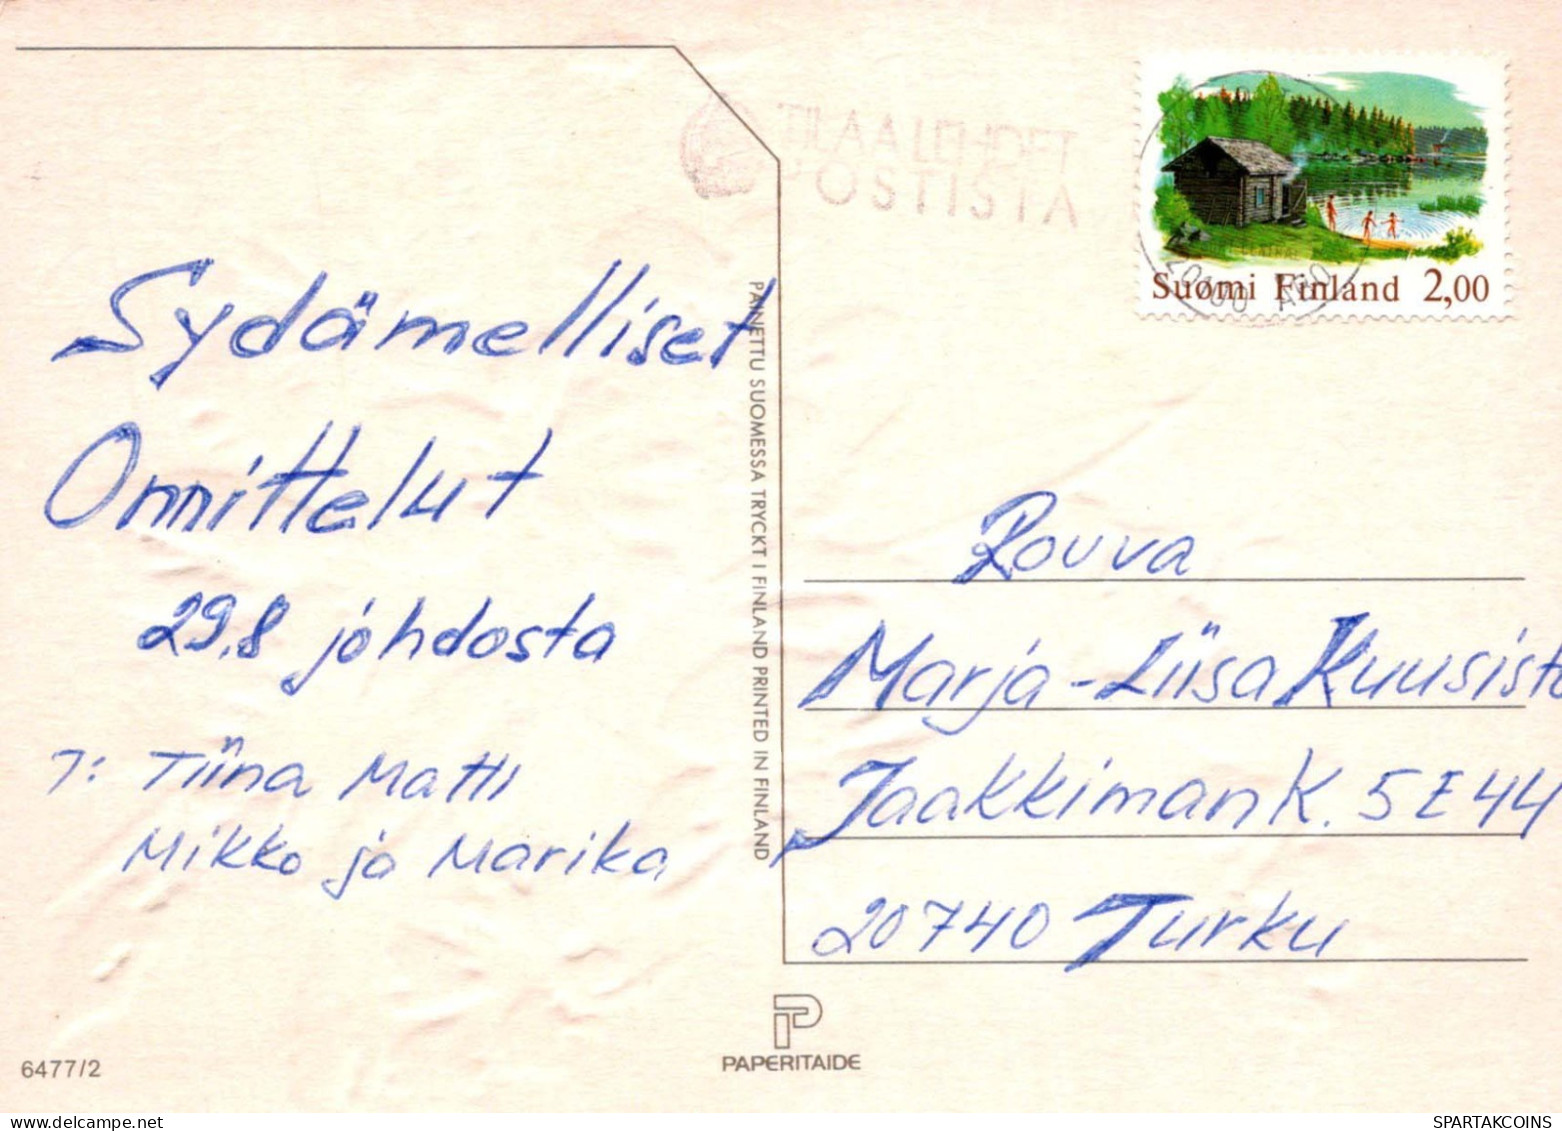 TILAA LEHDET
POSTISTA
Suomi Finland 2,00
Sydämelliset
Onnittelut
29.8 johdosta
T: Tiina Matti
Mikko ja Marika
PAINETTU SUOMESSA TRYCKT I FINLAND PRINTED IN FINLAND
Rouva
Marja-Liisa Kuusisto
Jaakkiman K. 5 E 44
20740 Turku
PAPERITAIDE
6477/2
SPARTAKCOINS